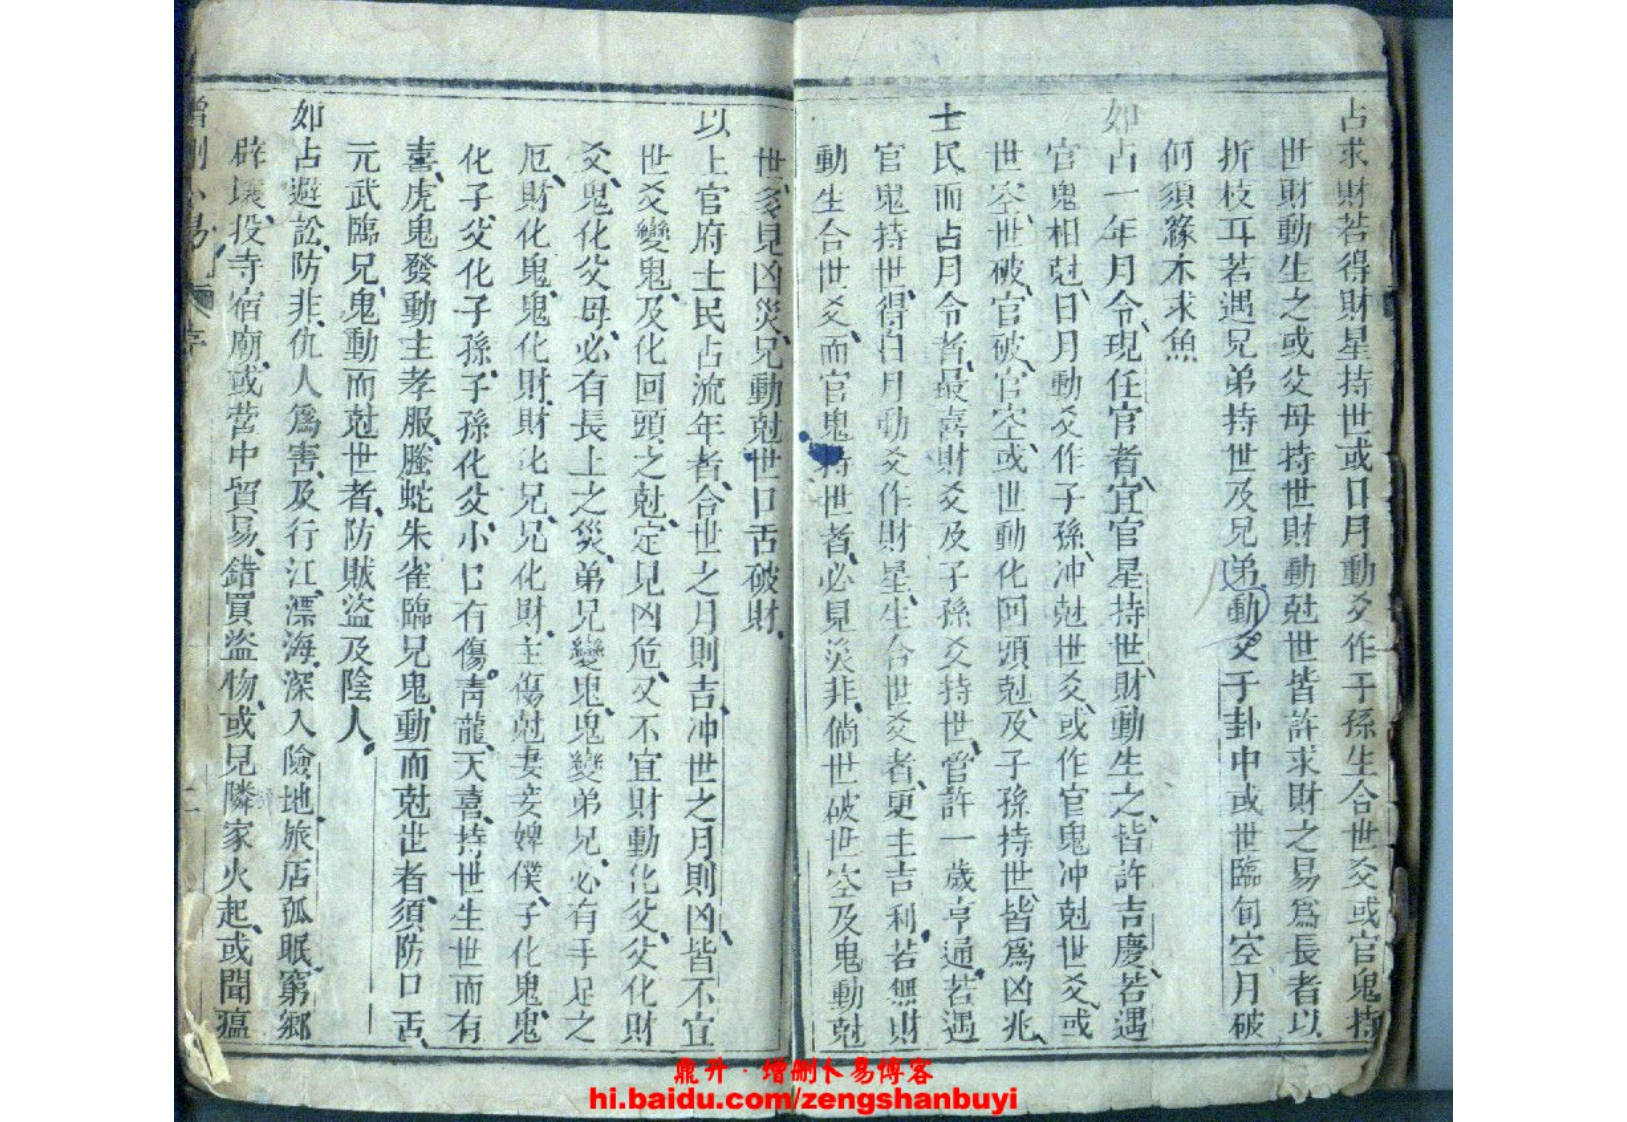 占求財若得財星持世或日月動爻作子孫生合世爻或官鬼持
世財動生之或父母持世財動尅世皆許求財之易爲長者以
折枝耳若遇兄弟持世及兄弟動爻于卦中或世臨旬空月破
何須緣木求魚
如占一年月令、現任官者、宜官星持世、財動生之、皆許吉慶、若遇
官鬼相尅、日月動爻作子孫、冲尅世爻、或作官鬼冲尅世爻、或
世空、世破、官破、官空、或世動化回頭尅、及子孫持世、皆爲凶兆、
士民而占月令者、最喜財爻及子孫爻持世、管許一歲亨通、若遇
官鬼持世、得日月動爻作財星、生合世爻者、更主吉利、若無財
動生合世爻、而官鬼持世者、必見災非、倘世破世空及鬼動尅
世、多見凶災、兄動尅世口舌破財、
以上官府士民占流年者、合世之月則吉、冲世之月則凶、皆不宜
世爻變鬼、及化回頭之尅、定見凶危、又不宜財動化父、父化財
爻、鬼化父母、必有長上之災、弟兄變鬼、鬼變弟兄、必有手足之
厄、財化鬼、鬼化財、財化兄、兄化財、主傷尅妻妾婢僕、子化鬼、鬼
化子、父化子孫、子孫化父、小口有傷。靑龍、天喜、持世生世而有
喜、虎鬼發動主孝服、螣蛇朱雀臨兄鬼、動而尅世者、須防口舌、
元武臨兄、鬼動而尅世者、防賊盜及陰人。
如占避訟、防非、仇人爲害、及行江、漂海、深入險地、旅店孤眠、窮鄉
辟壤、投寺宿廟、或營中貿易、錯買盜物、或見隣家火起、或聞瘟
增刪卜易
二
鼎升·增删卜易博客
hi.baidu.com/zengshanbuyi